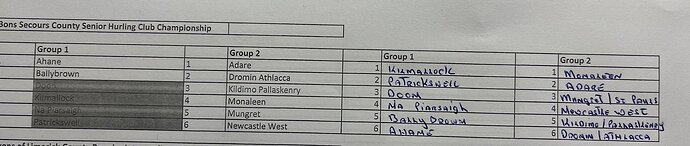 Bons Secours County Senior Hurling Club Championship
Group 1 Group 2 Group 1 Group 2
Ahane 1 Adare 1 KILMALLOCK 1 MONALEEN
Ballybrown 2 Dromin Athlacca 2 PATRICKSWELL 2 ADARE
Doon 3 Kildimo Pallaskenry 3 DOON 3 MUNGRET / ST PAULS
Kilmallock 4 Monaleen 4 NA PIARSAIGH 4 NEWCASTLE WEST
Na Piarsaigh 5 Mungret 5 BALLYBROWN 5 KILDIMO / PALLASKENRY
Patrickswell 6 Newcastle West 6 AHANE 6 DROMIN / ATHLACCA